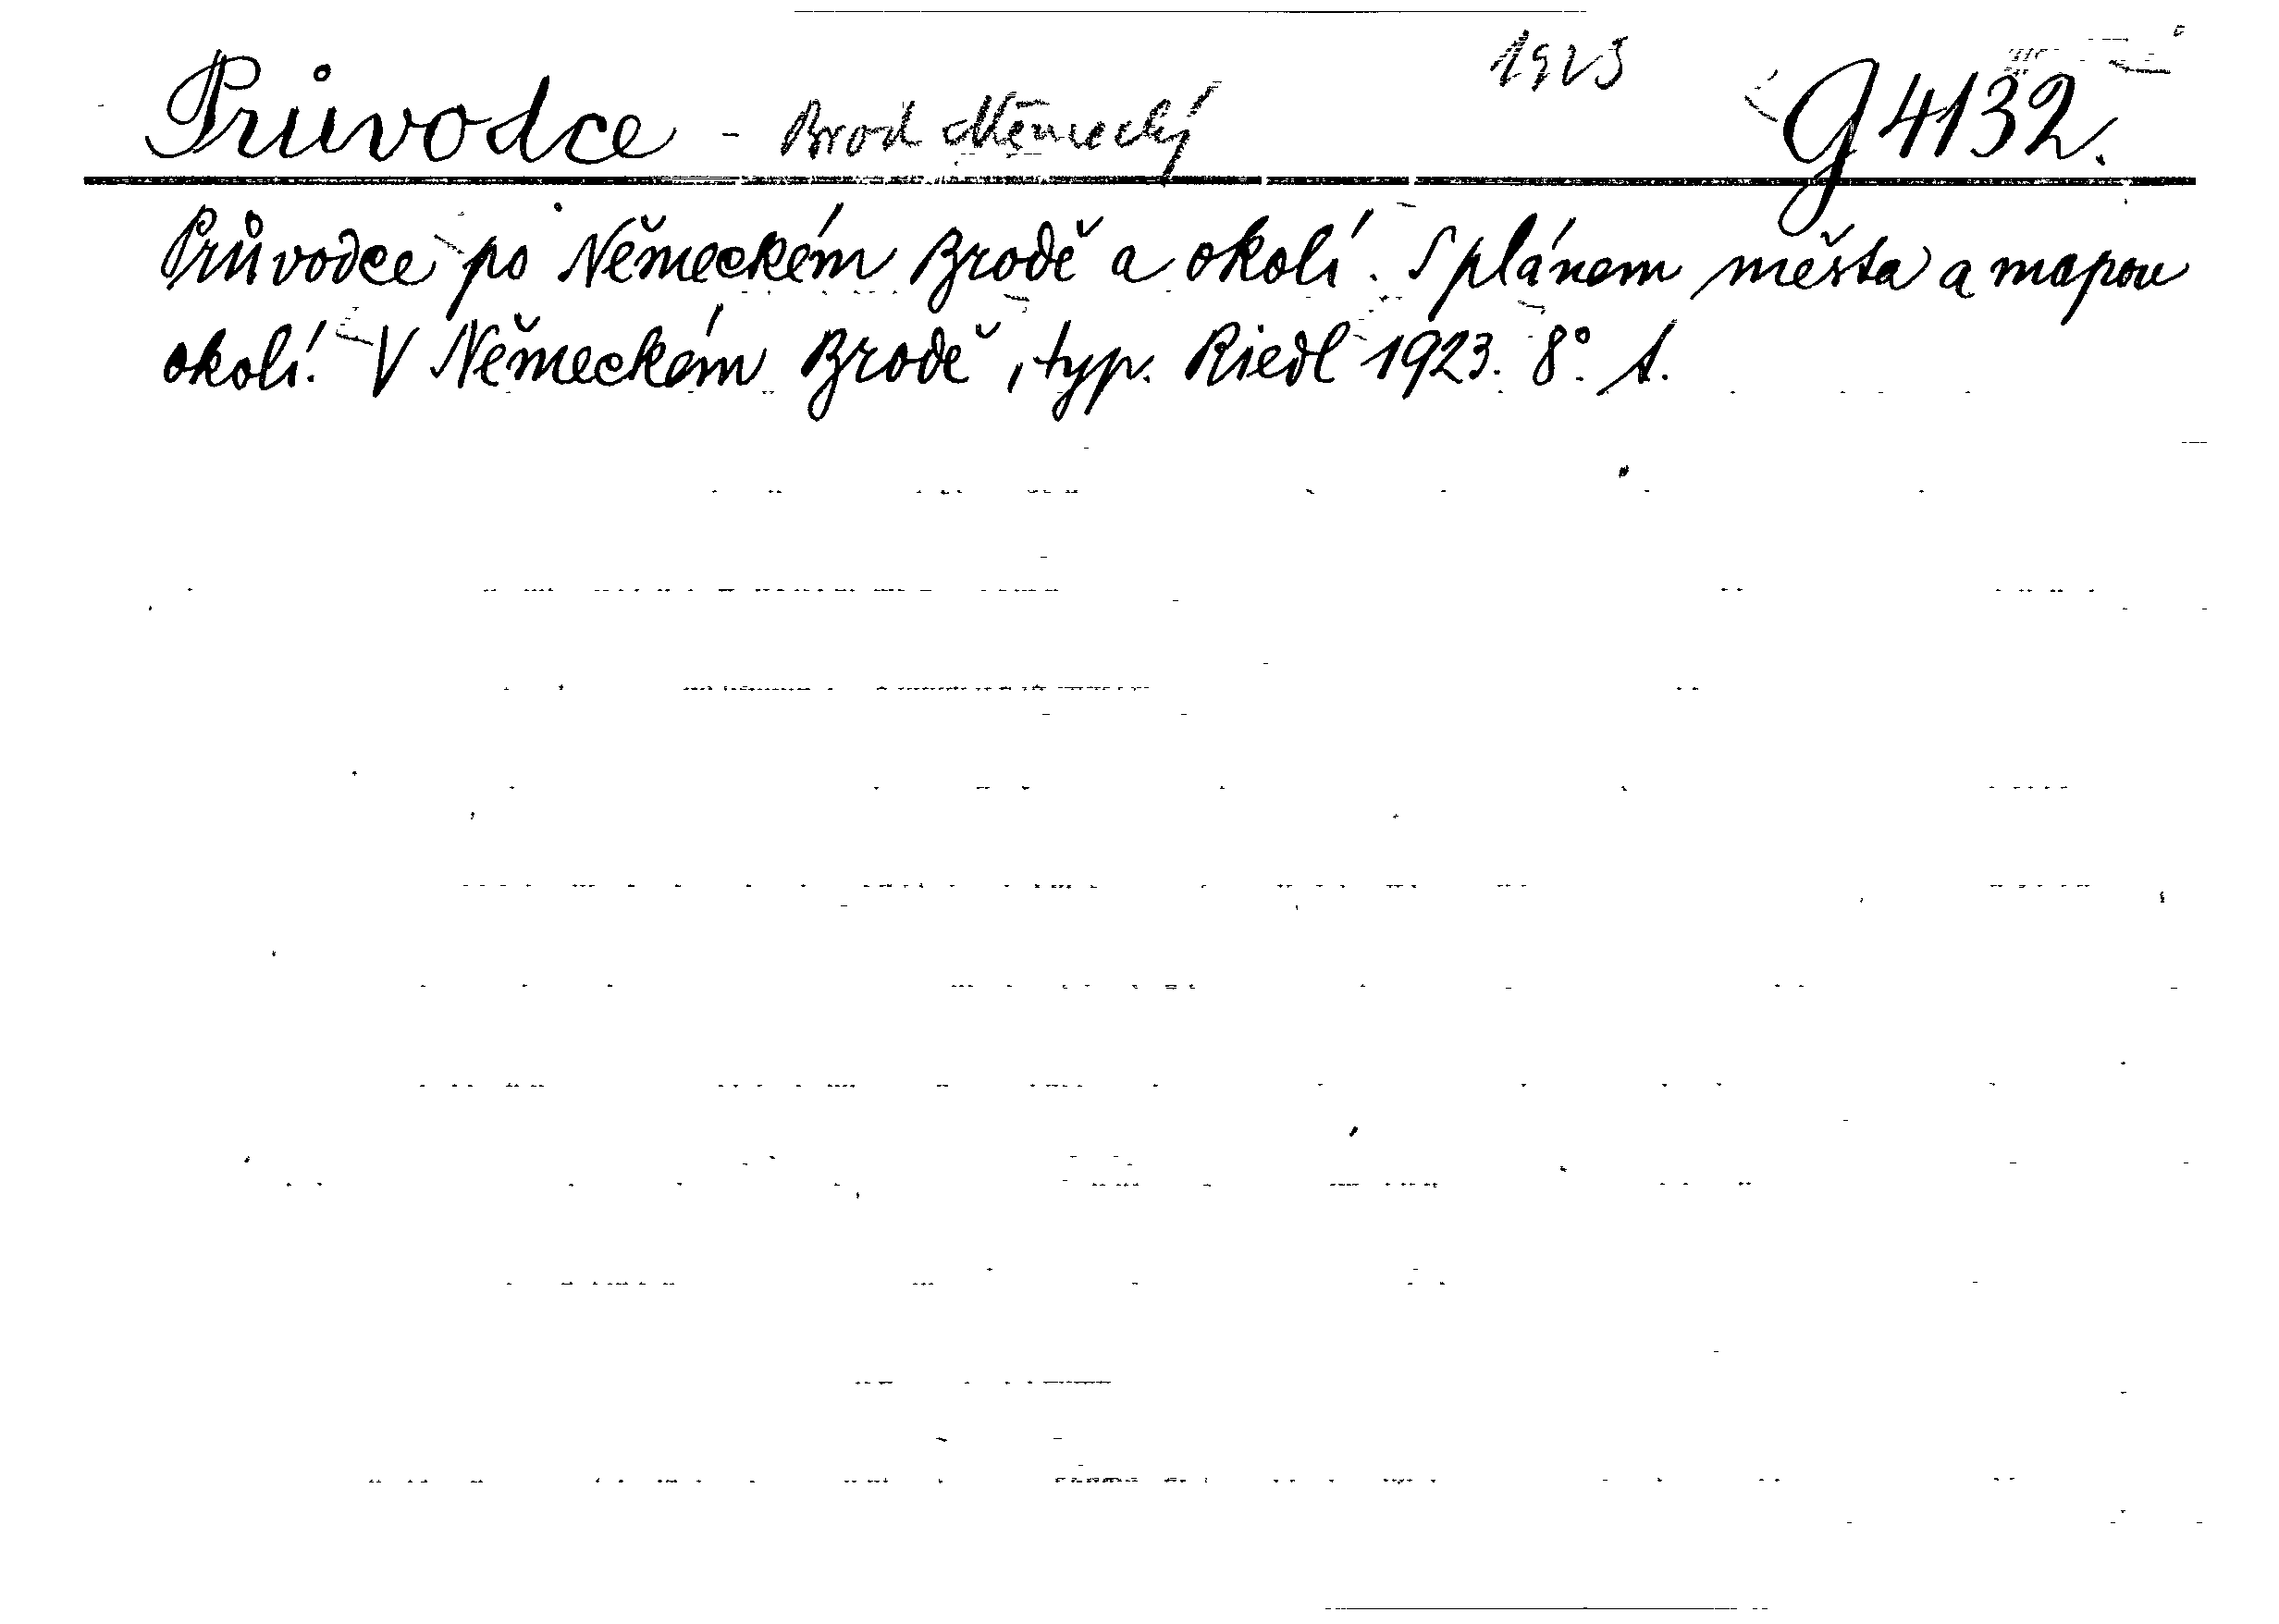 Průvodce - Brod Německý 1923 G 4132.
Průvodce po Německém Brodě a okolí. S plánem města a mapou
okolí. V Německém Brodě, typ. Riedl 1923. 8°. s.